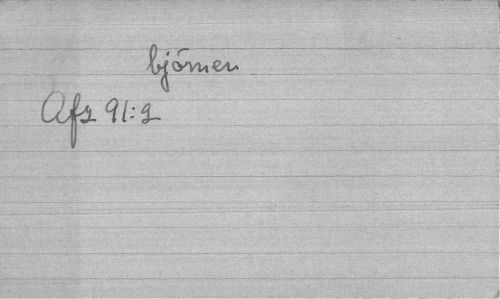 björnen
Afz 91:2